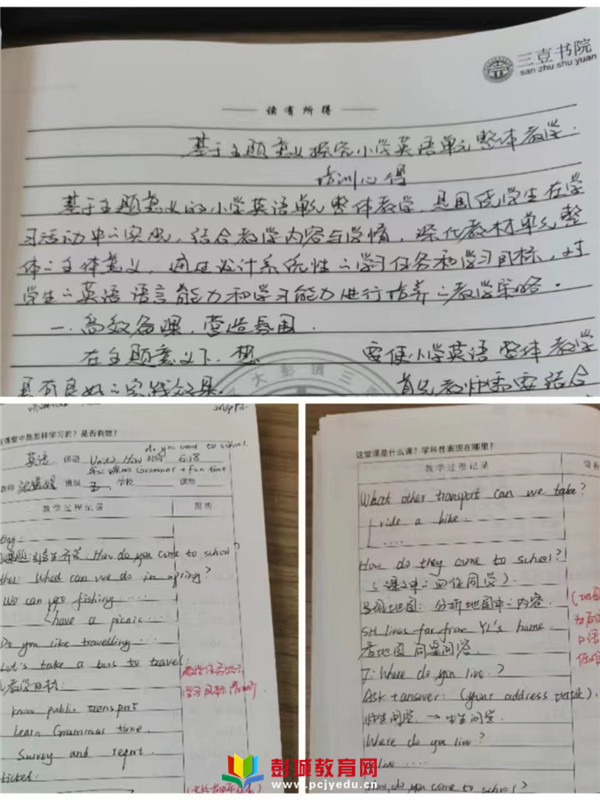 三壹书院
san zhu shu yuan
读有所得
基于主题意义探究小学英语单元整体教学
培训心得
基于主题意义的小学英语单元整体教学，是围绕学生在学
习活动中的实况，结合教学内容与学情，深化教材单元整
体的主体意义，通过设计系统性的学习任务和学习目标，对
学生的英语语言能力和学习能力进行培养的教学策略。
一、高效备课，营造氛围
在主题意义下，想 要使小学英语整体教学
具有良好的实践效果 首先教师需要结合
课堂中是怎样学习的？是否有效？
do you come to school
英语 Unit2 How 6.18
Grammar + fun time
学校
教学过程记录
How do you come to school?
What can we do in spring?
We can go fishing ......
have a picnic ...
Do you like travelling
Let's take a bus to travel
教学目标:
know public transport
Learn Grammar time.
Survey and report.
ticket.
这堂课是什么课？学科性表现在哪里？
教学过程记录
What other transport can we take?
ride a bike.
.....
How do they come to school?
(课文中四位同学).
地图: 分析地图中的内容.
SH lives far from YL's home
看地图 同桌问答.
T: Where do you live?
Ask + answer: (your address
师生问学 → 生生问学.
Where do you live?
I live ......
How do you come to school?
彭城教育网
www.pcjyedu.cn